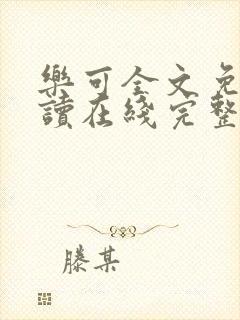 樂可全文免
讀在綫完整
滕某